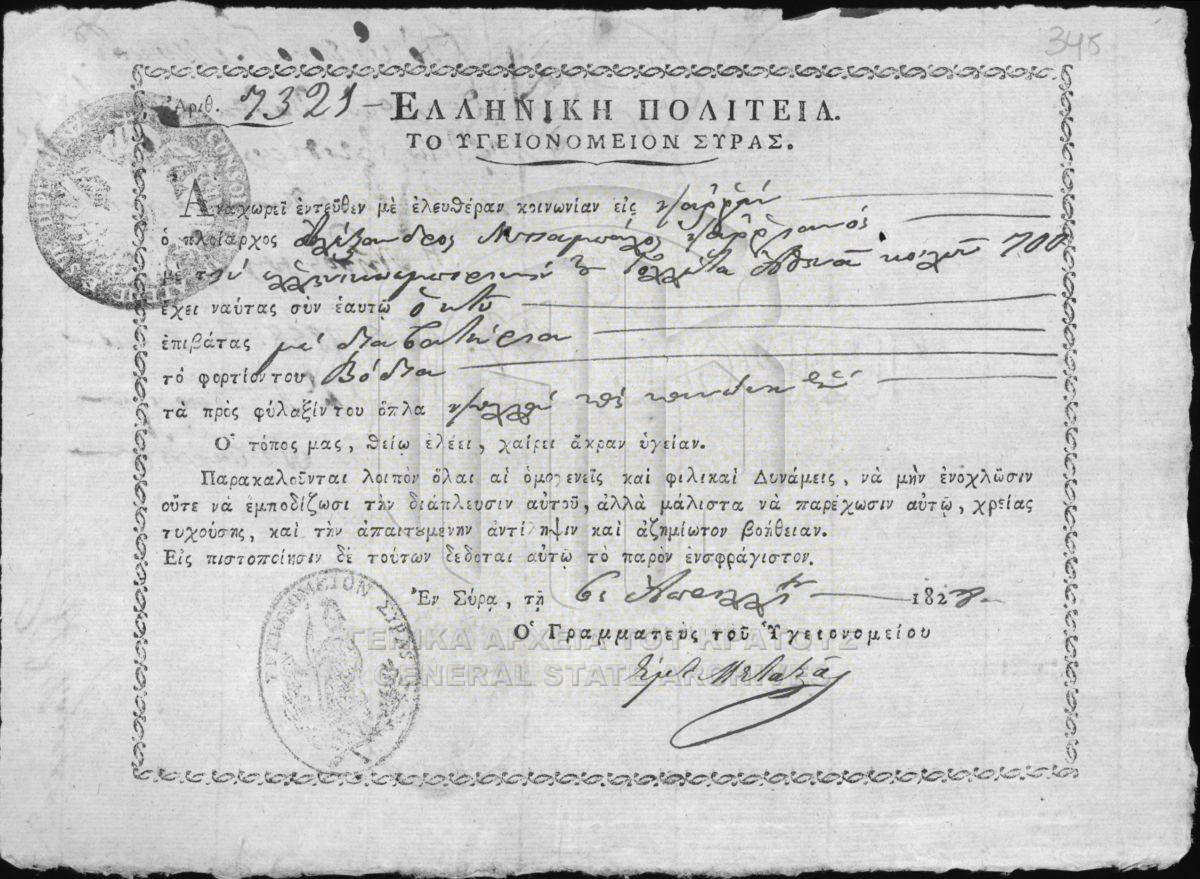 348
Ἀριθ. 7321 — ΕΛΛΗΝΙΚΗ ΠΟΛΙΤΕΙΑ.
ΤΟ ΥΓΕΙΟΝΟΜΕΙΟΝ ΣΥΡΑΣ.
Ἀναχωρεῖ ἐντεῦθεν μὲ ἐλευθέραν κοινωνίαν εἰς ψαρρὰν
ὁ πλοίαρχος ἀλέξανδρος ψαρριανός
μὲ τὴν Ἀθηνᾶ 700
ἔχει ναύτας σὺν ἑαυτῷ ὀκτὼ
ἐπιβάτας μὲ διαβατήρια
τὸ φορτίον του, Βόδια
τὰ πρὸς φύλαξίν του ὅπλα
Ὁ τόπος μας, θείῳ ἐλέει, χαίρει ἄκραν ὑγείαν.
Παρακαλοῦνται λοιπὸν ὅλαι αἱ ὁμογενεῖς καὶ φιλικαὶ Δυνάμεις, νὰ μὴν ἐνοχλῶσιν
οὔτε νὰ ἐμποδίζωσι τὴν διάπλευσιν αὐτοῦ, ἀλλὰ μάλιστα νὰ παρέχωσιν αὐτῷ, χρείας
τυχούσης, καὶ τὴν ἀπαιτουμένην ἀντίληψιν καὶ ἀζημίωτον βοήθειαν.
Εἰς πιστοποίησιν δὲ τούτων δέδοται αὐτῷ τὸ παρὸν ἐνσφράγιστον.
Ἐν Σύρᾳ, τῇ Ἀπριλλίου 182
Ὁ Γραμματεὺς τοῦ Ὑγειονομείου
Μεταξᾶ
ΥΓΕΙΟΝΟΜΕΙΟΝ ΣΥΡΑΣ
ΓΕΝΙΚΑ ΑΡΧΕΙΑ ΤΟΥ ΚΡΑΤΟΥΣ
GENERAL STATE ARCHIVES